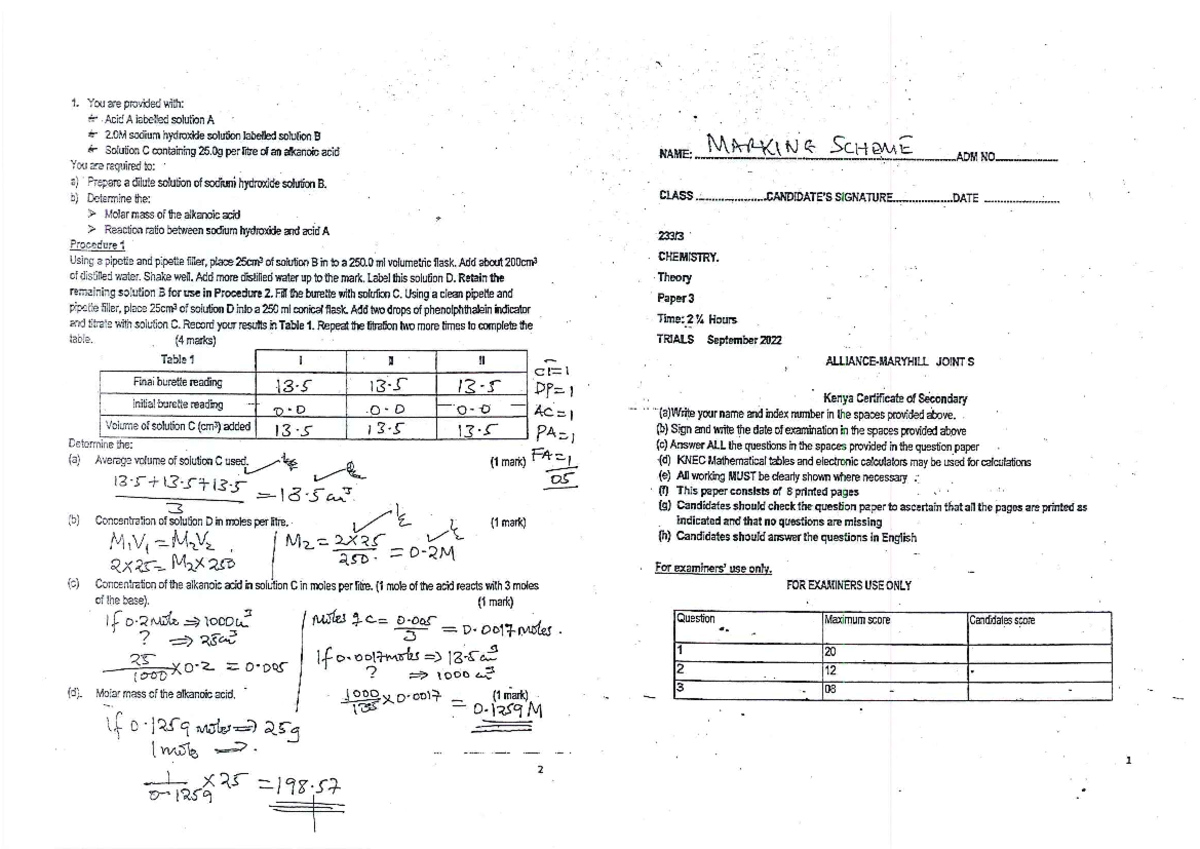 1. You are provided with:
Acid A labelled solution A
2.0M sodium hydroxide solution labelled solution B
Solution C containing 25.0g per litre of an alkanoic acid
You are required to:
a) Prepare a dilute solution of sodium hydroxide solution B.
b) Determine the:
➢ Molar mass of the alkanoic acid
➢ Reaction ratio between sodium hydroxide and acid A
Procedure 1
Using a pipette and pipette filler, place 25cm³ of solution B in to a 250.0 ml volumetric flask. Add about 200cm³
of distilled water. Shake well. Add more distilled water up to the mark. Label this solution D. Retain the
remaining solution B for use in Procedure 2. Fill the burette with solution C. Using a clean pipette and
pipette filler, place 25cm³ of solution D into a 250 ml conical flask. Add two drops of phenolphthalein indicator
and titrate with solution C. Record your results in Table 1. Repeat the titration two more times to complete the
table. (4 marks)
Table 1 I II III
Final burette reading 13.5 13.5 13.5
Initial burette reading 0.0 0.0 0.0
Volume of solution C (cm³) added 13.5 13.5 13.5
CT=1
DP=1
AC=1
PA=1
FA=1
05
Determine the:
(a) Average volume of solution C used. (1 mark)
13.5+13.5+13.5
3
=13.5cm³
(b) Concentration of solution D in moles per litre. (1 mark)
M₁V₁=M₂V₂
2x25=M₂x250
M₂=2x25
250
=0.2M
(c) Concentration of the alkanoic acid in solution C in moles per litre. (1 mole of the acid reacts with 3 moles
of the base). (1 mark)
If 0.2mole ⇒1000cm³
? ⇒25cm³
25
1000
x0.2 = 0.005
moles of C= 0.005
3
= 0.0017moles.
If 0.0017moles⇒13.5cm³
? ⇒1000cm³
1000
13.5
x0.0017 = 0.1259M
(d). Molar mass of the alkanoic acid. (1 mark)
If 0.1259 moles⇒25g
1mole ⇒.
1
0.1259
x25 =198.57
2
NAME: MARKING SCHEME ADM NO
CLASS CANDIDATE'S SIGNATURE DATE
233/3
CHEMISTRY.
Theory
Paper 3
Time: 2 ¼ Hours
TRIALS September 2022
ALLIANCE-MARYHILL JOINT S
Kenya Certificate of Secondary
(a)Write your name and index number in the spaces provided above.
(b) Sign and write the date of examination in the spaces provided above
(c) Answer ALL the questions in the spaces provided in the question paper
(d) KNEC Mathematical tables and electronic calculators may be used for calculations
(e) All working MUST be clearly shown where necessary
(f) This paper consists of 8 printed pages
(g) Candidates should check the question paper to ascertain that all the pages are printed as
indicated and that no questions are missing
(h) Candidates should answer the questions in English
For examiners' use only.
FOR EXAMINERS USE ONLY
Question Maximum score Candidates score
1 20
2 12
3 08
1